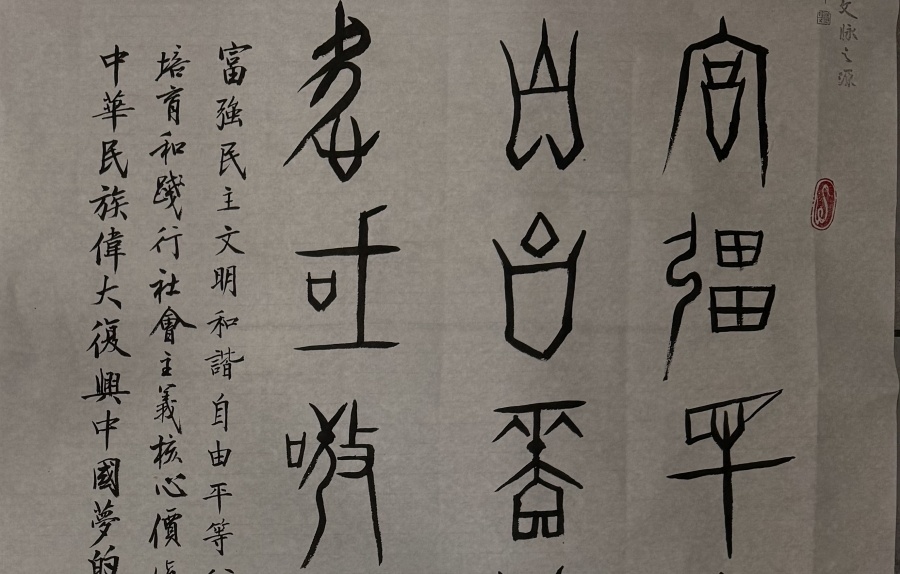 文脉之源
富彊民
自由平
愛國敬
富強民主文明和諧自由平等
培育和踐行社會主義核心價
中華民族偉大復興中國夢的